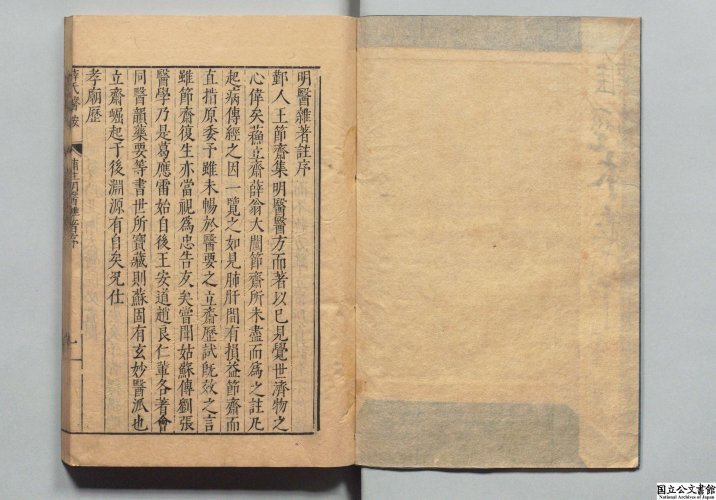 明醫雜著註序
鄞人王節齋集明醫醫方而著以已見覺世濟物之
心偉矣蘓立齋薛翁大闡節齋所未盡而爲之註凡
起病傳經之因一覽之如見肺肝間有損益節齋而
直指原委予雖未暢於醫要之立齋歷試旣效之言
雖節齋復生亦當視爲忠告友矣嘗聞姑蘇傳劉張
醫學乃是葛應雷始自後王安道趙良仁輩各著會
同醫韻藥要等書世所寶藏則蘇固有玄妙醫派也
立齋崛起于後淵源有自矣況仕
孝廟歷
薛氏醫按
註明醫雜著序
一
国立公文書館
National Archives of Japan